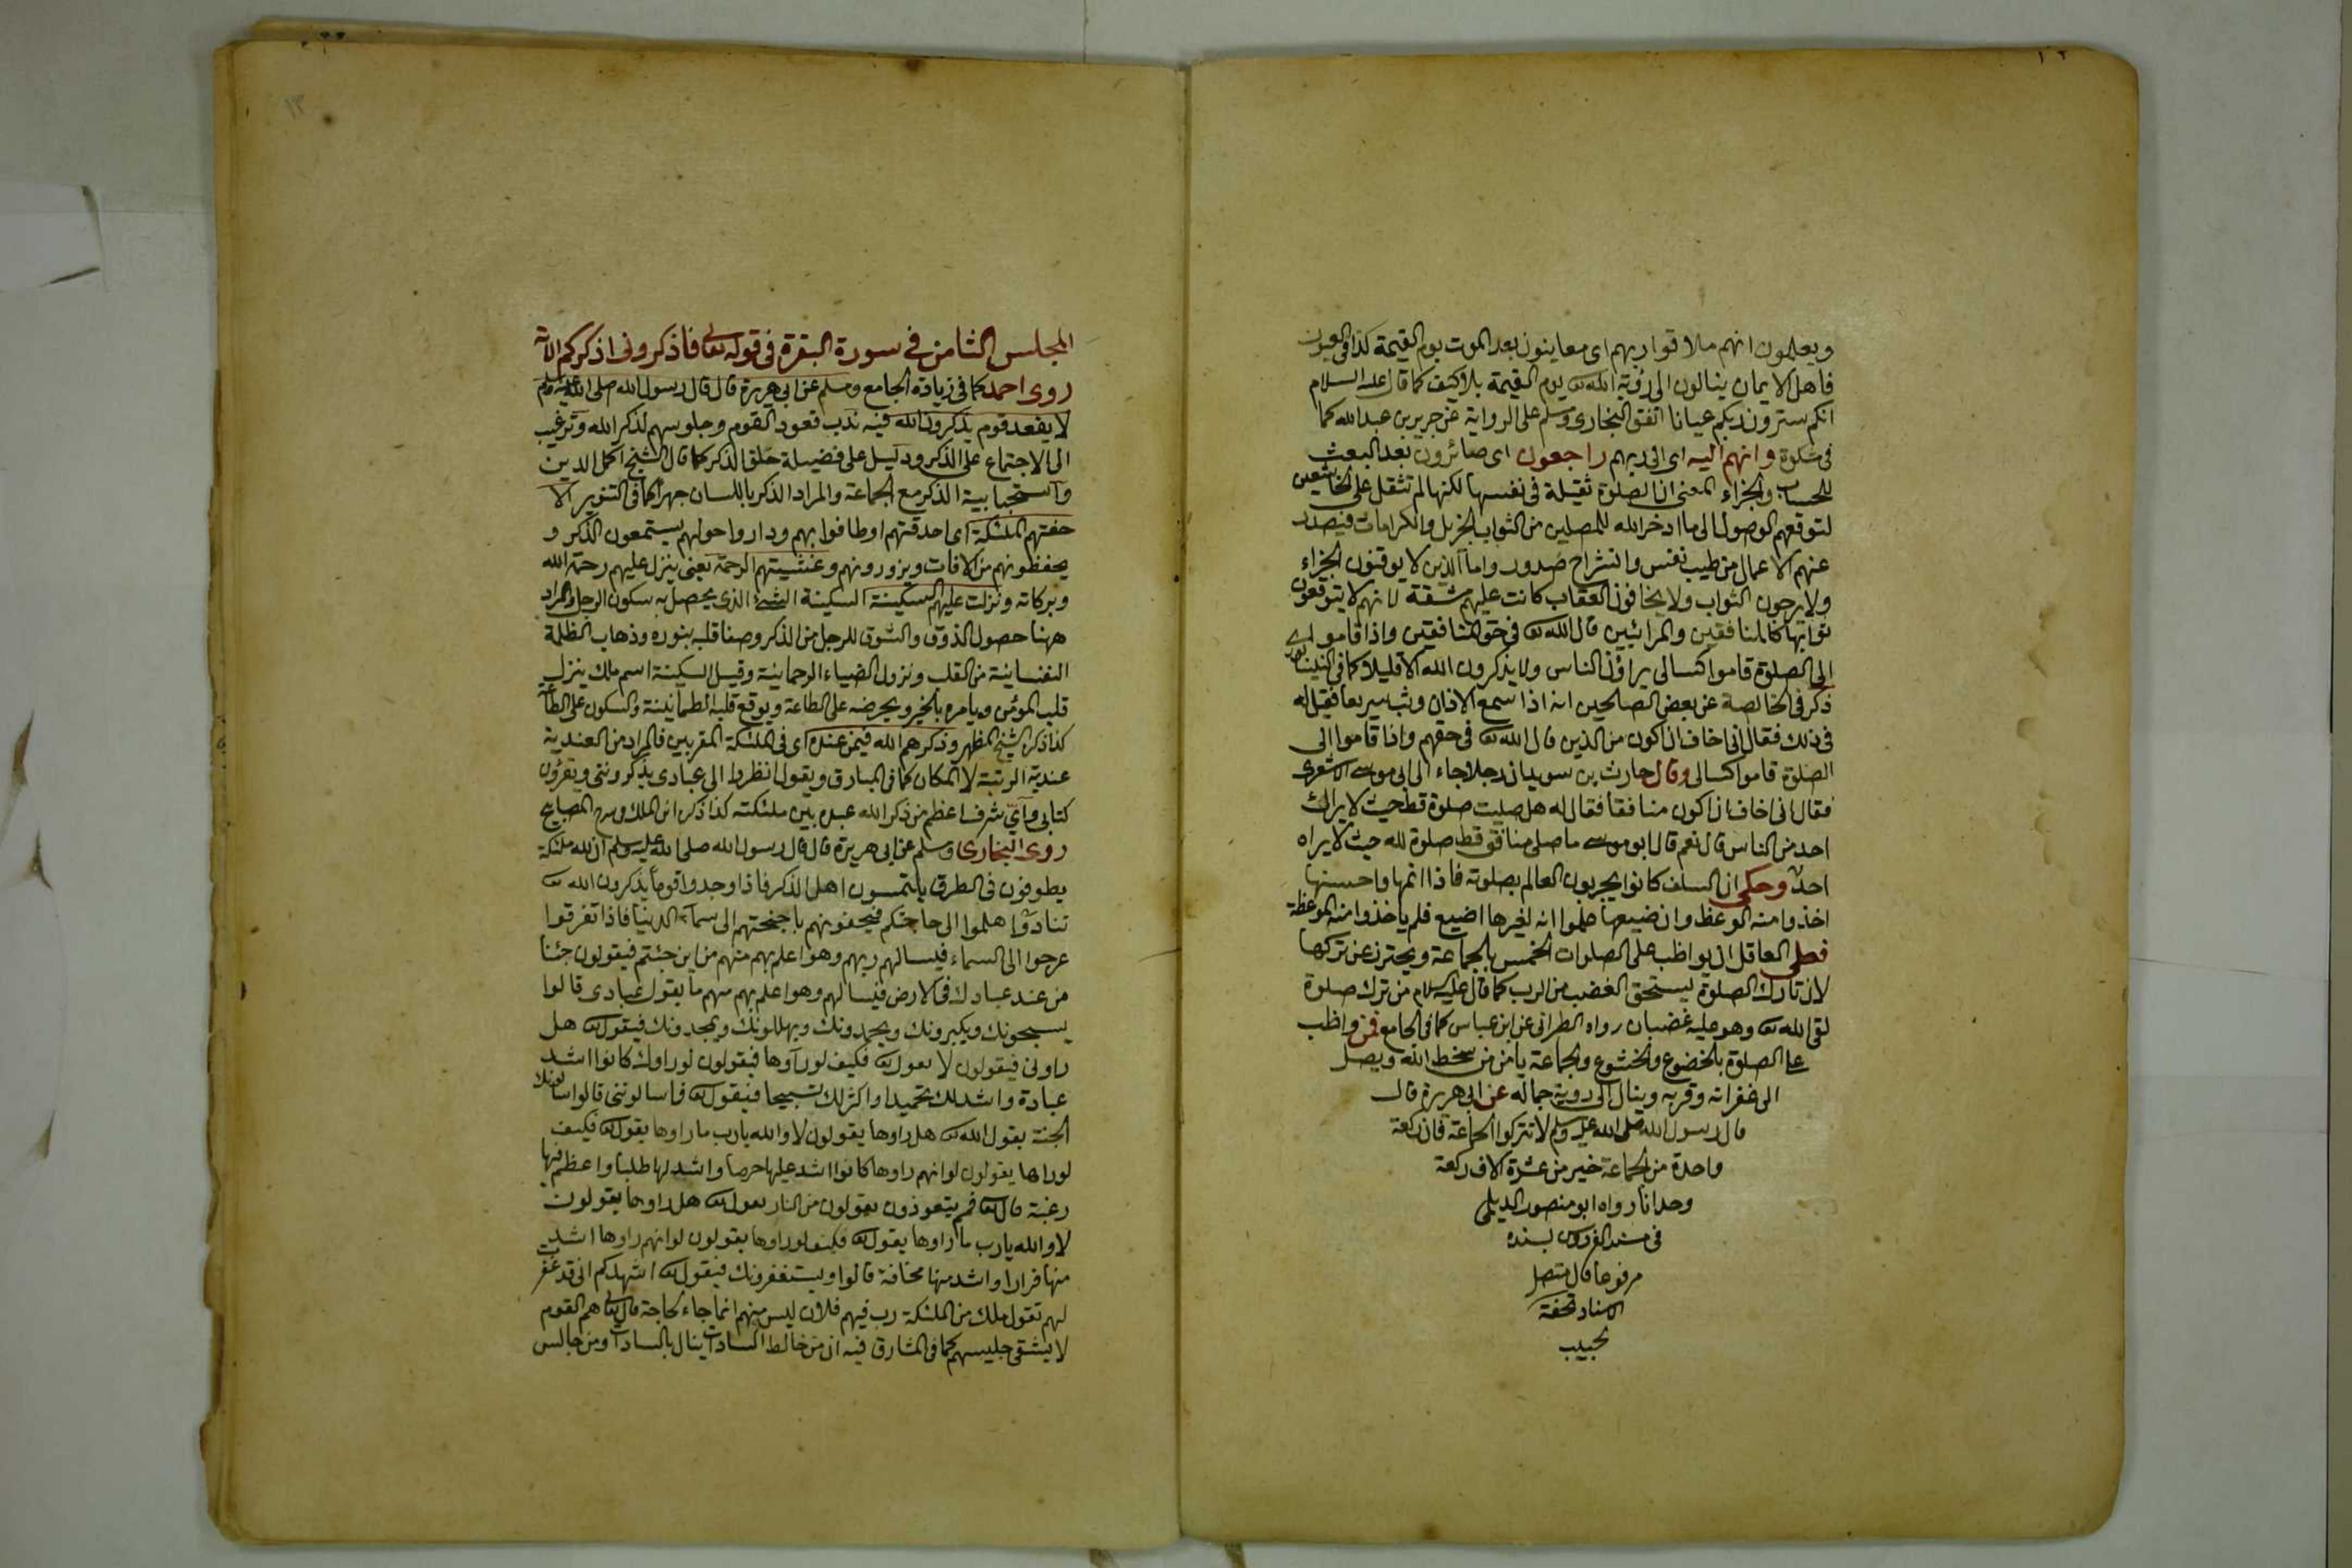 ويعلمون انهم ملاقوا ربهم اى معاينون بعد الموت يوم القيمة كذا فى العيون
فاهل الايمان ينالون الى رؤية الله تع يوم القيمة بلا كيف كما قال عليه السلام
انكم سترون ربكم عيانا اتفق البخارى ومسلم على الرواية عن جرير بن عبد الله كما
فى مشكوة وانهم اليه اى الى ربهم راجعون اى صائرون بعد البعث
للحساب والجزاء المعنى ان الصلوة ثقيلة فى نفسها لكنها لم تثقل على الخاشعين
لتوقعهم الوصول الى ما ادخر الله للمصلين من الثواب الجزيل والكرامات فيصدر
عنهم الاعمال من طيب نفس وانشراح صدور واما الذين لا يوقنون الجزاء
ولا يرجون الثواب ولا يخافون العقاب كانت عليهم مشقة لانهم لا يتوقعون
ثوابها كالمنافقين والمرائيين قال الله تع فى حق المنافقين واذا قاموا
الى الصلوة قاموا كسالى يراؤن الناس ولا يذكرون الله الا قليلا كما فى
ذكر فى الخالصة عن بعض الصالحين انه اذا سمع الاذان وثب سريعا فقيل له
فى ذلك فقال انى اخاف ان اكون من الذين قال الله تع فى حقهم واذا قاموا الى
الصلوة قاموا كسالى وقال حارث بن سويد ان رجلا جاء الى ابى موسى الاشعرى
فقال انى اخاف ان اكون منافقا فقال له هل صليت صلوة قط حيث لا يراك
احد من الناس قال نعم قال ابو موسى ما صلى منافق قط صلوة لله حيث لا يراه
احد وحكى ان السلف كانوا يجربون العالم بصلوته فاذا اتمها واحسنها
اخذوا منه الوعظ وان ضيعها علموا انه لغيرها اضيع فلم ياخذوا منه الموعظة
فعلى العاقل ان يواظب على الصلوات الخمس بالجماعة ويحترز عن تركها
لان تارك الصلوة ليستحق الغضب من الرب كما قال عليه السلام من ترك صلوة
لقى الله تع وهو عليه غضبان رواه الطبرانى عن ابن عباس كما فى الجامع فمن واظب
على الصلوة بالخضوع والخشوع والجماعة يامن من سخط الله ويصل
الى غفرانه وقربه وينال الى روية جماله عن ابى هريرة قال
قال رسول الله صلى الله عليه وسلم لا تتركوا الجماعة فان ركعة
واحدة من الجماعة خير من عشرة الاف ركعة
وحدانا رواه ابو منصور الديلمى
فى مسند الفردوس بسنده
مرفوعا قال متصل
الاسناد تحفة
لحبيب
المجلس الثامن فى سورة البقرة فى قوله تعالى فاذكرونى اذكركم الآية
روى احمد كما فى زيادة الجامع ومسلم عن ابى هريرة قال قال رسول الله صلى الله عليه وسلم
لا يقعد قوم يذكرون الله فيه ندب قعود القوم وجلوسهم لذكر الله وترغيب
الى الاجتماع على الذكر ودليل على فضيلة حلق الذكر كما قال الشيخ اكمل الدين
واستحبابية الذكر مع الجماعة والمراد الذكر باللسان جهرا كما فى التنوير الا
حفتهم الملئكة اى احدقتهم او طافوا بهم وداروا حولهم يستمعون الذكر و
يحفظونهم من الافات ويزورونهم وغشيتهم الرحمة يعنى ينزل عليهم رحمة الله
وبركاته ونزلت عليهم السكينة السكينة الشئ الذى يحصل به سكون الرجل والمراد
ههنا حصول الذوق والشوق للرجل من الذكر وصفا قلبه بنوره وذهاب الظلمة
النفسانية من القلب ونزول الضياء الرحمانية وقيل السكينة اسم ملك ينزل
قلب المؤمن ويامره بالخير ويحرضه على الطاعة ويوقع قلبه الطمانينة والسكون على الطاعة
كذا ذكره الشيخ المظهر وذكرهم الله فيمن عنده اى فى الملئكة المقربين فالمراد من العندية
عندية الرتبة لا المكان كما فى المبارق ويقول انظروا الى عبادى يذكروننى ويقرؤن
كتابى واى شرف اعظم من ذكر الله عبده بين ملئكته كذا ذكره ابن الملك فى شرح المصابيح
روى البخارى ومسلم عن ابى هريرة قال قال رسول الله صلى الله عليه وسلم ان لله ملئكة
يطوفون فى الطرق يلتمسون اهل الذكر فاذا وجدوا قوما يذكرون الله تع
تنادوا هلموا الى حاجتكم فيحفونهم باجنحتهم الى سماء الدنيا فاذا تفرقوا
عرجوا الى السماء فيسالهم ربهم وهو اعلم بهم منهم من اين جئتم فيقولون جئنا
من عند عبادك فى الارض فيسالهم وهو اعلم بهم منهم ما يقول عبادى قالوا
يسبحونك ويكبرونك ويحمدونك ويهللونك ويمجدونك فيقول تع هل
راونى فيقولون لا يقول تع فكيف لو راوها فيقولون لو راوك كانوا اشد
عبادة واشد لك تحميدا واكثر لك تسبيحا فيقول تع فما سالوننى قالوا يسالونك
الجنة يقول الله تع هل راوها يقولون لا والله يارب ما راوها يقول تع فكيف
لو راوها يقولون لو انهم راوها كانوا اشد عليها حرصا واشد لها طلبا واعظم فيها
رغبة قال تع فمم يتعوذون يقولون من النار يقول تع هل راوها يقولون
لا والله يارب ما راوها يقول تع فكيف لو راوها يقولون لو انهم راوها اشد
منها فرارا واشد منها مخافة قالوا ويستغفرونك فيقول تع اشهدكم انى قد غفرت
لهم تقول ملك من الملئكة رب فيهم فلان ليس منهم انما جاء لحاجة قال تعالى هم القوم
لا يشقى جليسهم كما فى المشارق فيه ان من خالط السادات ينال بالسادات ومن جالس